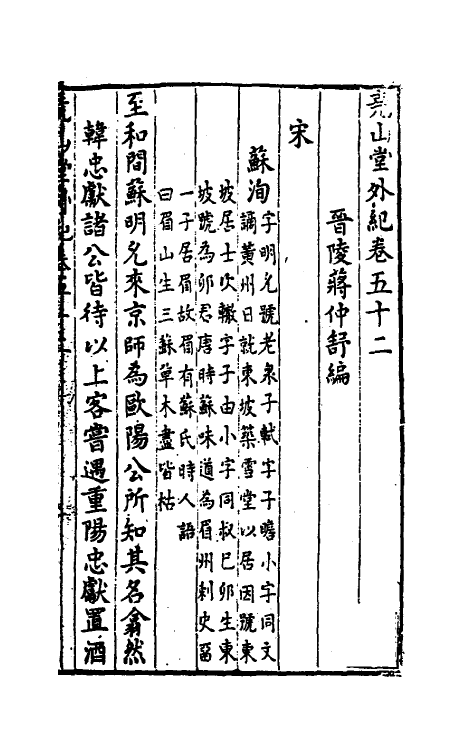 堯山堂外紀卷五十二
晉陵蔣仲舒編
宋
蘇洵
字明允號老泉子軾字子瞻小字同文
謫黃州日就東坡築雪堂以居因號東
坡居士次轍字子由小字同叔己卯生東
坡號為卯君唐時蘇味道為眉州刺史留
一子居眉故眉有蘇氏時人語
曰眉山生三蘇草木盡皆枯
至和間蘇明允來京師為歐陽公所知其名翕然
韓忠獻諸公皆待以上客嘗遇重陽忠獻置酒